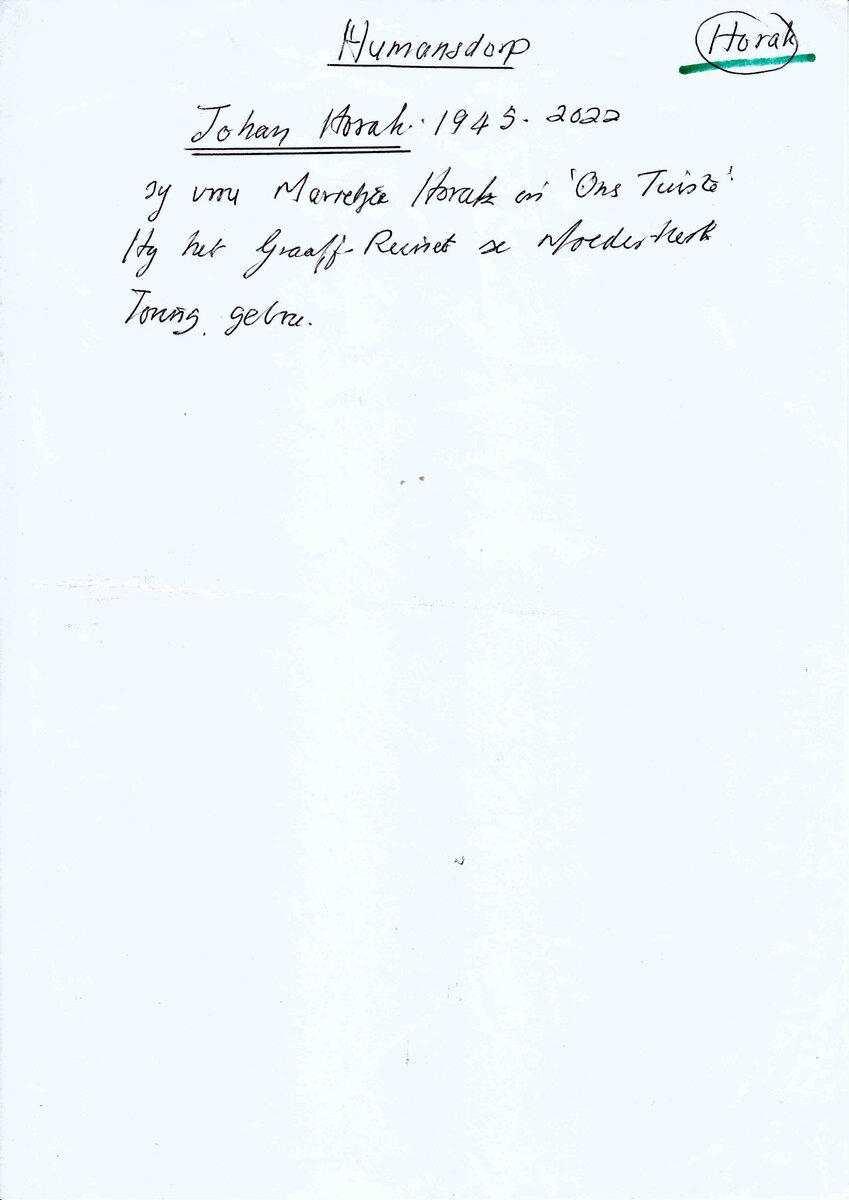 Humansdorp
Horak
Johan Horak. 1945. 2022
sy vrou Marietjie Horak in 'Ons Tuiste'
Hy het Graaff-Reinet se Moederkerk
Toring gebou.